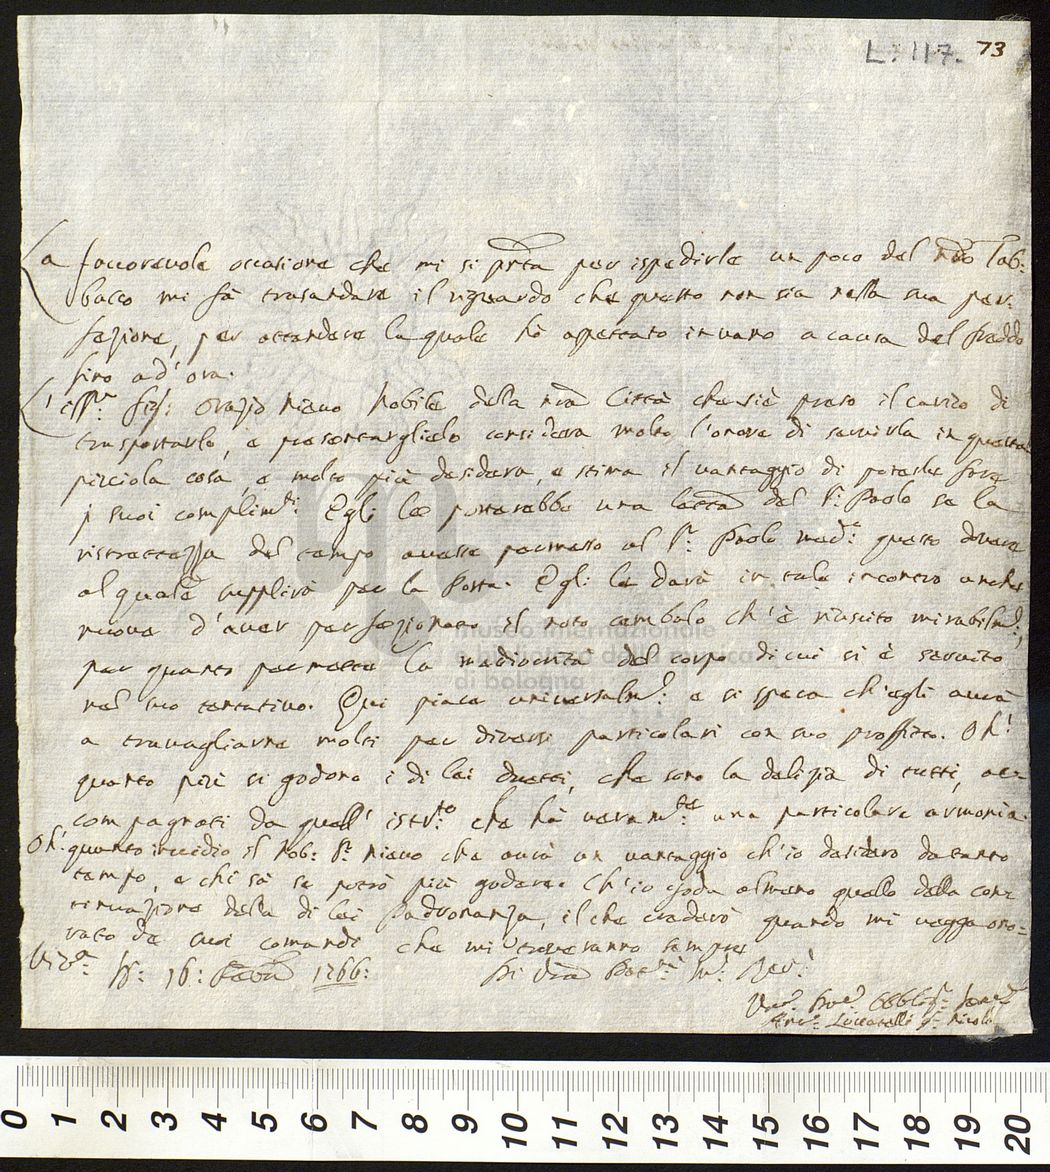 L. 117. 73
La favorevole occasione che mi si pnta per ispedirle un poco del nro Tab:
bacco mi fà trasandare il riguardo che questo non sia nella sua per:
fezione, per attendere la quale hò aspettato invano a causa del freddo
sino ad' ora.
L' Sig: Orazio Nobile della nra Città che si è preso il carico di
trasportarlo, e presentarglielo considera molto l'onore di servirla in questa
picciola cosa, e molto più desidera, e stima il vantaggio di poterle fare
j suoi complimti: Egli le portarebbe una lettra del Sr. Paolo se la
ristrettezza del tempo avesse permesso al Sr. Paolo mede: questo dovere
al quale supplirà per la Posta. Egli le darà in tale incontro anche
nuova d'aver perfezionato il noto cembalo ch'è riuscito mirabilmte:,
per quanto permette la mediocrità del corpo di cui si è servito
nel suo tentativo. Qui piace universalmte: e si spera ch'egli avrà
a travagliarne molti per diversi particolari con suo proffitto. Oh!
quanto più si godono i di lei duetti, che sono la delizia di tutti, ac=
compagnati da quell' istrto: che hà veramte: una particolare armonia.
Oh! quanto invidio il Nob: Sr. che avrà un vantaggio ch'io desidero da tanto
tempo, e chi sà se potrò più godere. Ch'io goda almeno quello della con=
tinuazione della di lei Padronanza, il che crederò quando mi vegga ono=
rato de suoi comandi che mi troveranno sempre
16: 1766: Di Vra
museo internazionale
e biblioteca della musica
di bologna
0 1 2 3 4 5 6 7 8 9 10 11 12 13 14 15 16 17 18 19 20